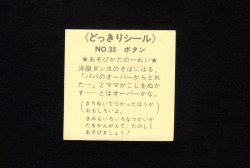 《どっきりシール》
NO.38 ボタン
★あそびかたの一れい★
洋服ダンスのそばにはる。
「パパのオーバーからとれ
た…」とママがこしをぬか
す…とはオーバーかな。
きりぬいてつかったほうが
おもしろいよ。
きみもいろいろなつかいか
たをかんがえて、たのしく
あそびましょう♪